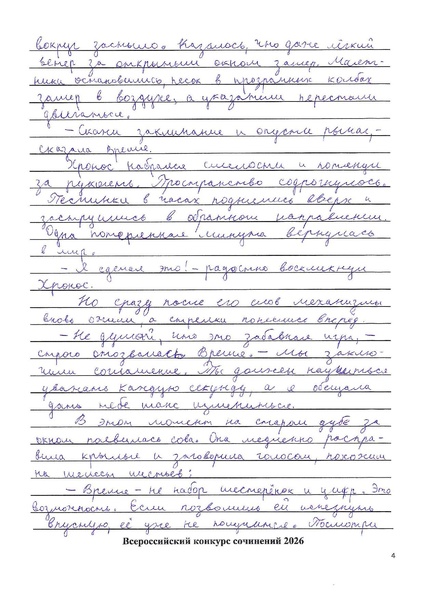 вокруг застыло. Казалось, что даже лёгкий
ветер за открытым окном замер. Маят-
ники остановились, песок в прозрачных колбах
замер в воздухе, а указатели перестали
двигаться.
– Скажи заклинание и опусти рычаг, –
сказала Время.
Хронос набрался смелости и потянул
за рукоять. Пространство содрогнулось.
Песчинки в часах поднялись вверх и
заструились в обратном направлении.
Одна потерянная минута вернулась
в мир.
– Я сделал это! – радостно воскликнул
Хронос.
Но сразу после его слов механизмы
вновь ожили, а стрелки понеслись вперёд.
– Не думай, что это забавная игра, –
строго отозвалась Время. – Мы заклю-
чили соглашение. Ты должен научиться
уважать каждую секунду, а я обещала
дать тебе шанс измениться.
В этот момент на старом дубе за
окном появилась сова. Она медленно распра-
вила крылья и заговорила голосом, похожим
на шелест листьев:
– Время – не набор шестерёнок и цифр. Это
возможность. Если позволишь ей ускользнуть
впустую, её уже не получится. Посмотри
Всероссийский конкурс сочинений 2026
4